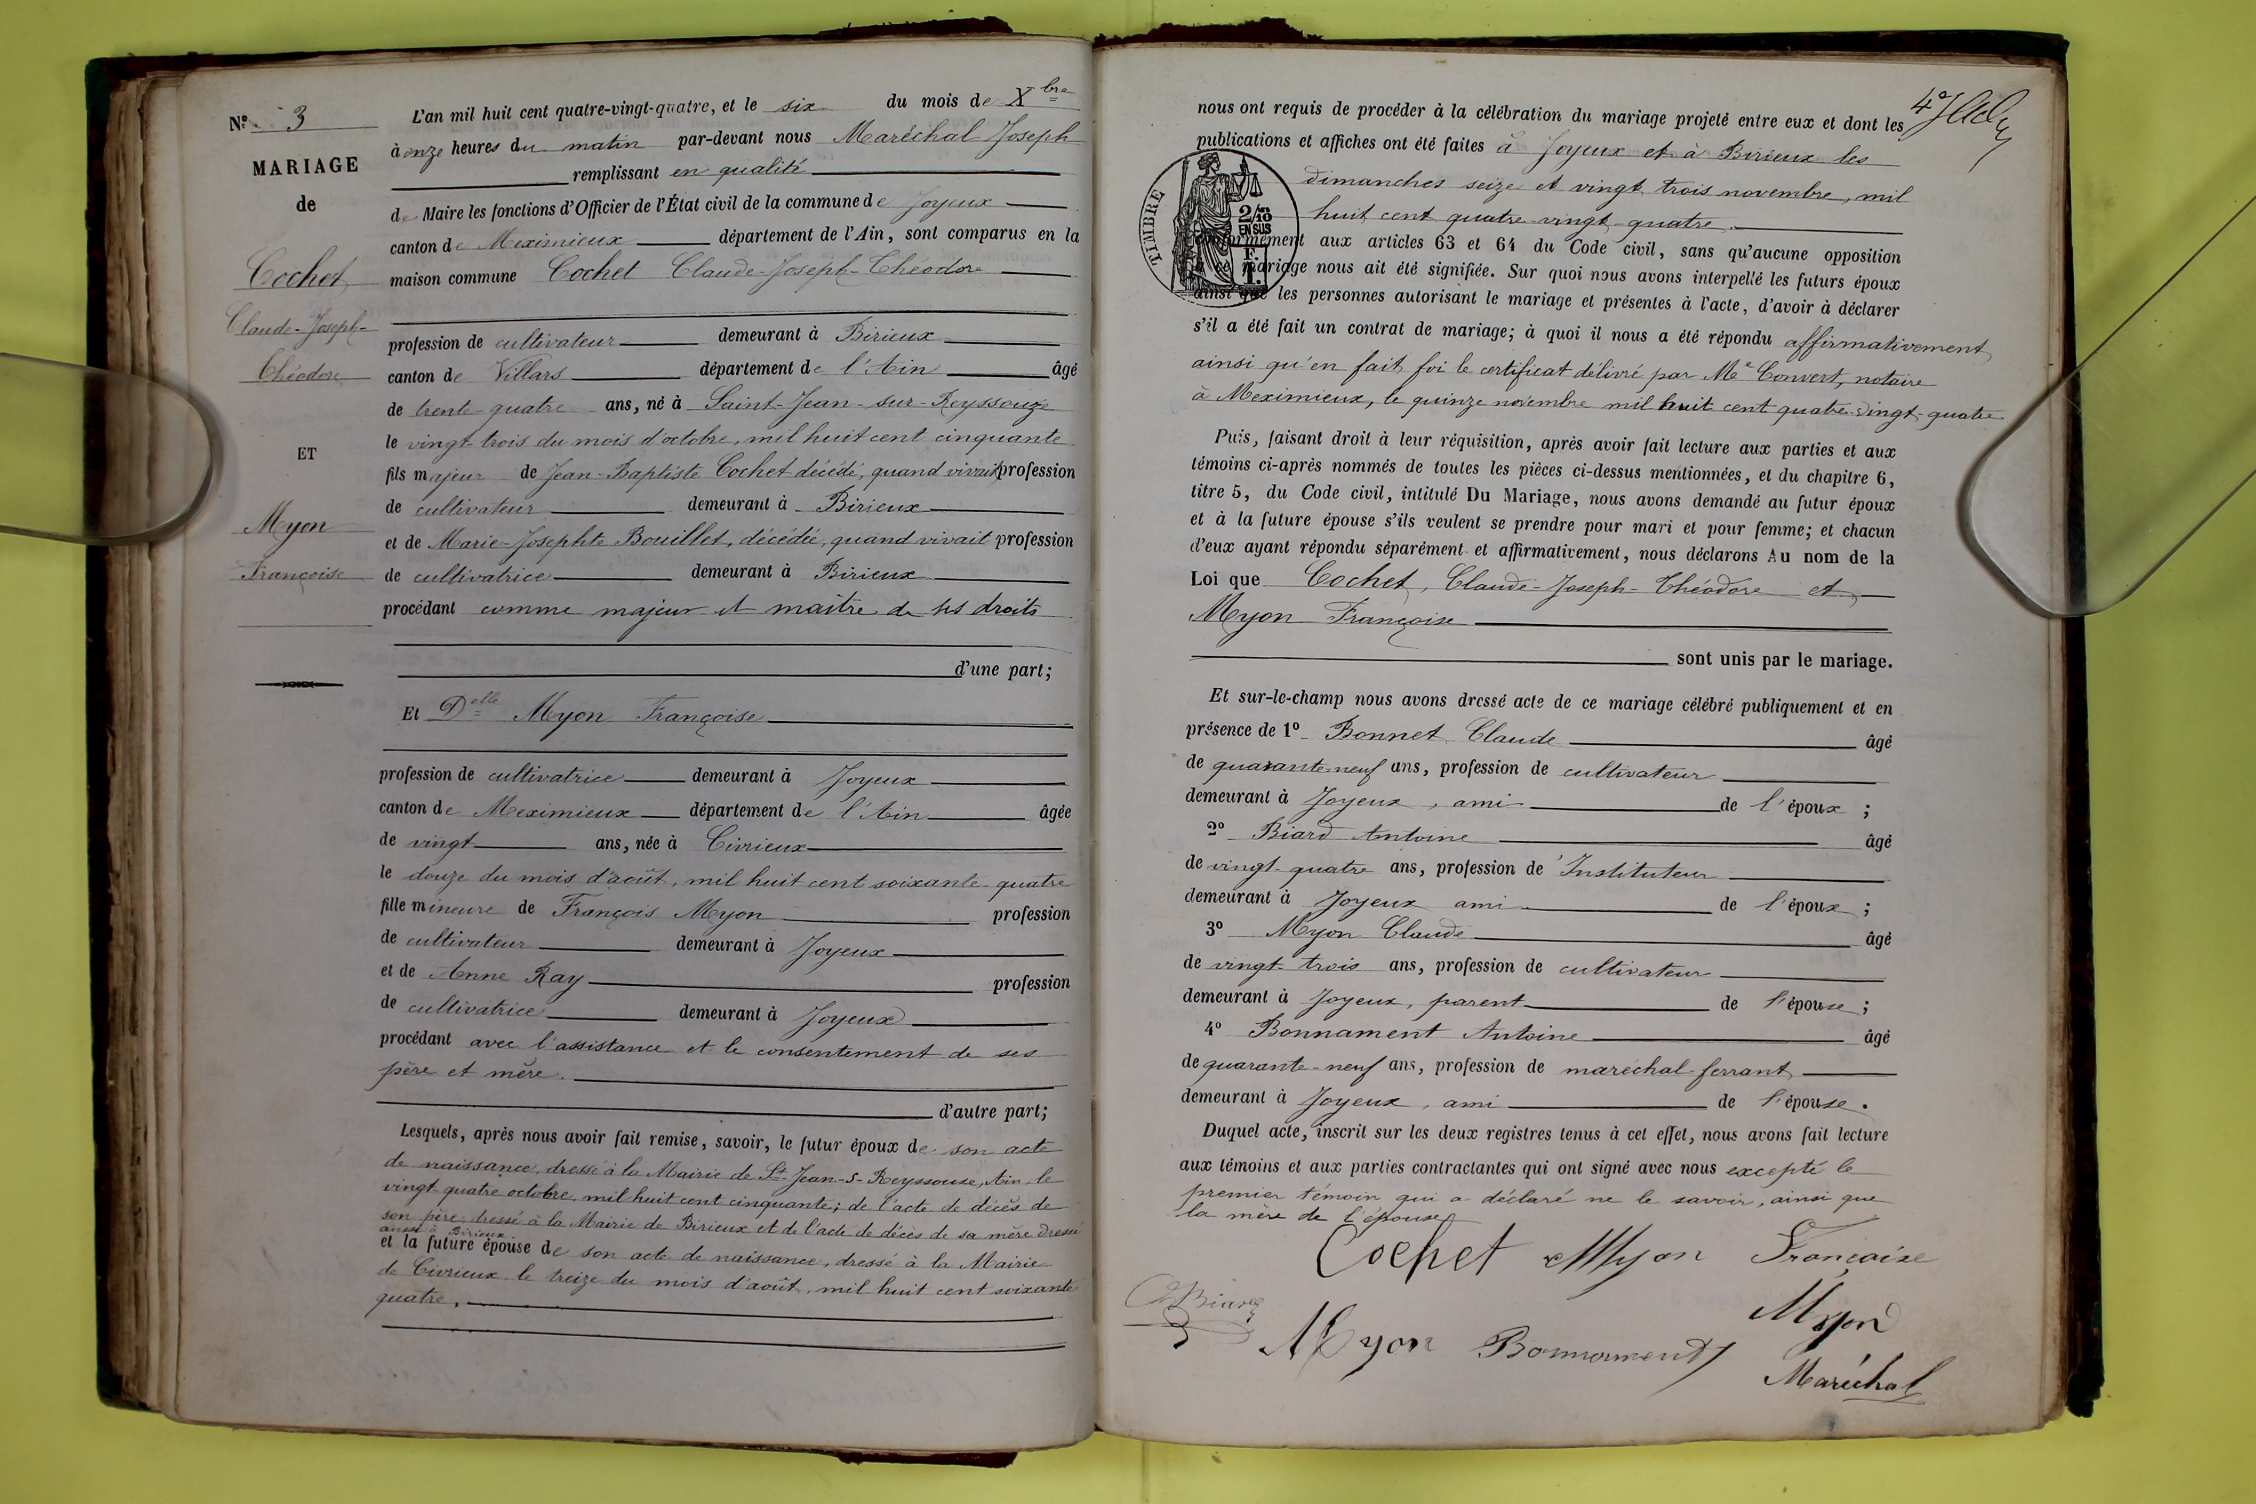 N° 3
MARIAGE
de
Cochet
Claude-Joseph-
Théodore
ET
Myon
Françoise
L'an mil huit cent quatre-vingt-quatre, et le six du mois de Xbre
à onze heures du matin par-devant nous Maréchal Joseph
remplissant en qualité
de Maire les fonctions d'Officier de l'État civil de la commune de Joyeux
canton de Meximieux département de l'Ain, sont comparus en la
maison commune Cochet Claude-Joseph-Théodore
profession de cultivateur demeurant à Birieux
canton de Villars département de l'Ain âgé
de trente-quatre ans, né à Saint-Jean-sur-Reyssouze
le vingt-trois du mois d'octobre, mil huit cent cinquante
fils majeur de Jean-Baptiste Cochet décédé, quand vivait profession
de cultivateur demeurant à Birieux
et de Marie-Josephte Bouillet, décédée, quand vivait profession
de cultivatrice demeurant à Birieux
procédant comme majeur et maître de ses droits
d'une part;
Et Delle Myon Françoise
profession de cultivatrice demeurant à Joyeux
canton de Meximieux département de l'Ain âgée
de vingt ans, née à Civrieux
le douze du mois d'août, mil huit cent soixante-quatre
fille mineure de François Myon profession
de cultivateur demeurant à Joyeux
et de Anne Ray profession
de cultivatrice demeurant à Joyeux
procédant avec l'assistance et le consentement de ses
père et mère.
d'autre part;
Lesquels, après nous avoir fait remise, savoir, le futur époux de son acte
de naissance, dressé à la Mairie de St-Jean-s-Reyssouse, Ain, le
vingt-quatre octobre, mil huit cent cinquante; de l'acte de décès de
son père dressé à la Mairie de Birieux et de l'acte de décès de sa mère dressé
aussi à Birieux
et la future épouse de son acte de naissance, dressé à la Mairie
de Civrieux le treize du mois d'août, mil huit cent soixante
quatre.
4e
nous ont requis de procéder à la célébration du mariage projeté entre eux et dont les
publications et affiches ont été faites à Joyeux et à Birieux les
dimanches seize et vingt-trois novembre, mil
huit cent quatre-vingt-quatre.
TIMBRE
2/10 EN SUS
F.
1.
conformément aux articles 63 et 64 du Code civil, sans qu'aucune opposition
à ce mariage nous ait été signifiée. Sur quoi nous avons interpellé les futurs époux
ainsi que les personnes autorisant le mariage et présentes à l'acte, d'avoir à déclarer
s'il a été fait un contrat de mariage; à quoi il nous a été répondu affirmativement
ainsi qu'en fait foi le certificat délivré par Me Convert, notaire
à Meximieux, le quinze novembre mil huit cent quatre-vingt-quatre
Puis, faisant droit à leur réquisition, après avoir fait lecture aux parties et aux
témoins ci-après nommés de toutes les pièces ci-dessus mentionnées, et du chapitre 6,
titre 5, du Code civil, intitulé Du Mariage, nous avons demandé au futur époux
et à la future épouse s'ils veulent se prendre pour mari et pour femme; et chacun
d'eux ayant répondu séparément et affirmativement, nous déclarons Au nom de la
Loi que Cochet, Claude-Joseph-Théodore et
Myon Françoise
sont unis par le mariage.
Et sur-le-champ nous avons dressé acte de ce mariage célébré publiquement et en
présence de 1° Bonnet Claude âgé
de quarante-neuf ans, profession de cultivateur
demeurant à Joyeux, ami de l'époux;
2° Biard Antoine âgé
de vingt-quatre ans, profession d'Instituteur
demeurant à Joyeux ami de l'époux;
3° Myon Claude âgé
de vingt-trois ans, profession de cultivateur
demeurant à Joyeux, parent de l'épouse;
4° Bonnament Antoine âgé
de quarante-neuf ans, profession de maréchal-ferrant
demeurant à Joyeux, ami de l'épouse.
Duquel acte, inscrit sur les deux registres tenus à cet effet, nous avons fait lecture
aux témoins et aux parties contractantes qui ont signé avec nous excepté le
premier témoin qui a déclaré ne le savoir, ainsi que
la mère de l'épouse
Cochet Myon Françoise
Biard Myon
Myon Bonnament
Maréchal